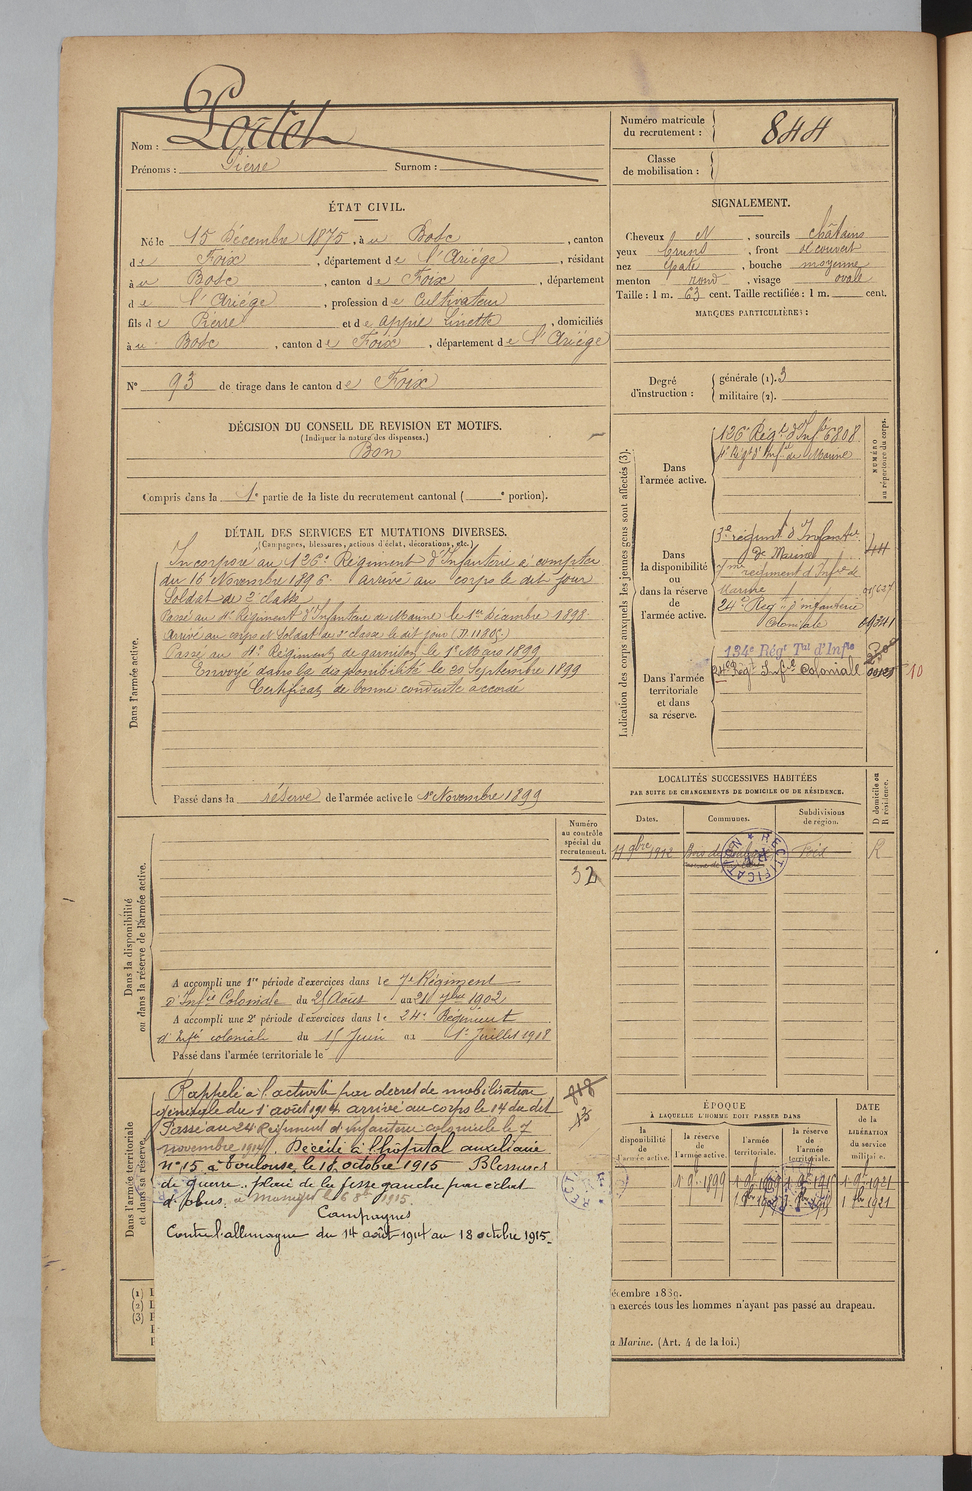 Nom : Portet
Prénoms : Pierre Surnom :
Numéro matricule du recrutement : 844
Classe de mobilisation :
ÉTAT CIVIL.
Né le 15 Décembre 1875, à u Bosc, canton
d e Foix, département d e l'Ariége, résidant
à u Bosc, canton d e Foix, département
d e l'Ariége, profession d e Cultivateur
fils d e Pierre et d e Linette, domiciliés
à u Bosc, canton d e Foix, département d e l'Ariége
N° 93 de tirage dans le canton d e Foix
DÉCISION DU CONSEIL DE REVISION ET MOTIFS.
(Indiquer la nature des dispenses.)
Bon
Compris dans la 1e partie de la liste du recrutement cantonal ( e portion).
SIGNALEMENT.
Cheveux N, sourcils châtains
yeux bruns, front découvert
nez épaté, bouche moyenne
menton rond, visage ovale
Taille : 1 m. 63 cent. Taille rectifiée : 1 m. cent.
MARQUES PARTICULIÈRES :
Degré d'instruction : générale (1). 3
militaire (2).
DÉTAIL DES SERVICES ET MUTATIONS DIVERSES.
(Campagnes, blessures, actions d'éclat, décorations, etc.)
Dans l'armée active.
Incorporé au 126e Régiment d'Infanterie à compter
du 16 Novembre 1896. arrivé au corps le dit jour
Soldat de 2e classe
Passé au 4e Régiment d'Infanterie de Marine le 1er Décembre 1898
Arrivé au corps et Soldat de 2e classe le dit jour
Passé au Régiment de garnison le 1er Mars 1899
Envoyé dans la disponibilité le 20 Septembre 1899
Certificat de bonne conduite accordé
Passé dans la réserve de l'armée active le 1er Novembre 1899
Indication des corps auxquels les jeunes gens sont affectés (3).
NUMÉRO au répertoire du corps.
Dans l'armée active.
126e Régt d'Infie 6808
4e Régt d'Infie de Marine
Dans la disponibilité ou dans la réserve de l'armée active.
3e régiment d'Infanterie
de Marine
7me régiment d'Infie de
Marine
24e Régt d'infanterie
Coloniale
Dans l'armée territoriale et dans sa réserve.
134e Régt Tal d'Infie
24e Régt Infie Coloniale
LOCALITÉS SUCCESSIVES HABITÉES
PAR SUITE DE CHANGEMENTS DE DOMICILE OU DE RÉSIDENCE.
Dates. Communes. Subdivisions de région. D domicile ou R résidence.
1912 Foix R
RECTIFICATION
Dans la disponibilité ou dans la réserve de l'armée active.
Numéro au contrôle spécial du recrutement.
32
A accompli une 1re période d'exercices dans l e 7e Régiment
d'Infie Coloniale du 21 Août au 1902
A accompli une 2e période d'exercices dans l e 24e Régiment
d'Infie coloniale du 15 Juin au 1er Juillet 1908
Passé dans l'armée territoriale le
Dans l'armée territoriale et dans sa réserve
Rappelé à l'activité par décret de mobilisation
générale du 1er août 1914 arrivé au corps le 14 du dit
Passé au 24 Régiment d'infanterie coloniale le 7
novembre 1914. Décédé à l'hôpital auxiliaire
n° 15 à Toulouse, le 18 octobre 1915 Blessures
de guerre : plaie de la fesse gauche par éclat
d'obus, à Massiges le 6 8bre 1915.
Campagnes
Contre l'allemagne du 14 août 1914 au 18 octobre 1915.
ÉPOQUE
À LAQUELLE L'HOMME DOIT PASSER DANS
DATE de la LIBÉRATION du service militaire.
la disponibilité de l'armée active. la réserve de l'armée active. l'armée territoriale. la réserve de l'armée territoriale.
1 9bre 1899 1 9bre 1921
1 9bre 1921
(1)
(2)
(3)
écembre 1889.
n exercés tous les hommes n'ayant pas passé au drapeau.
a Marine. (Art. 4 de la loi.)